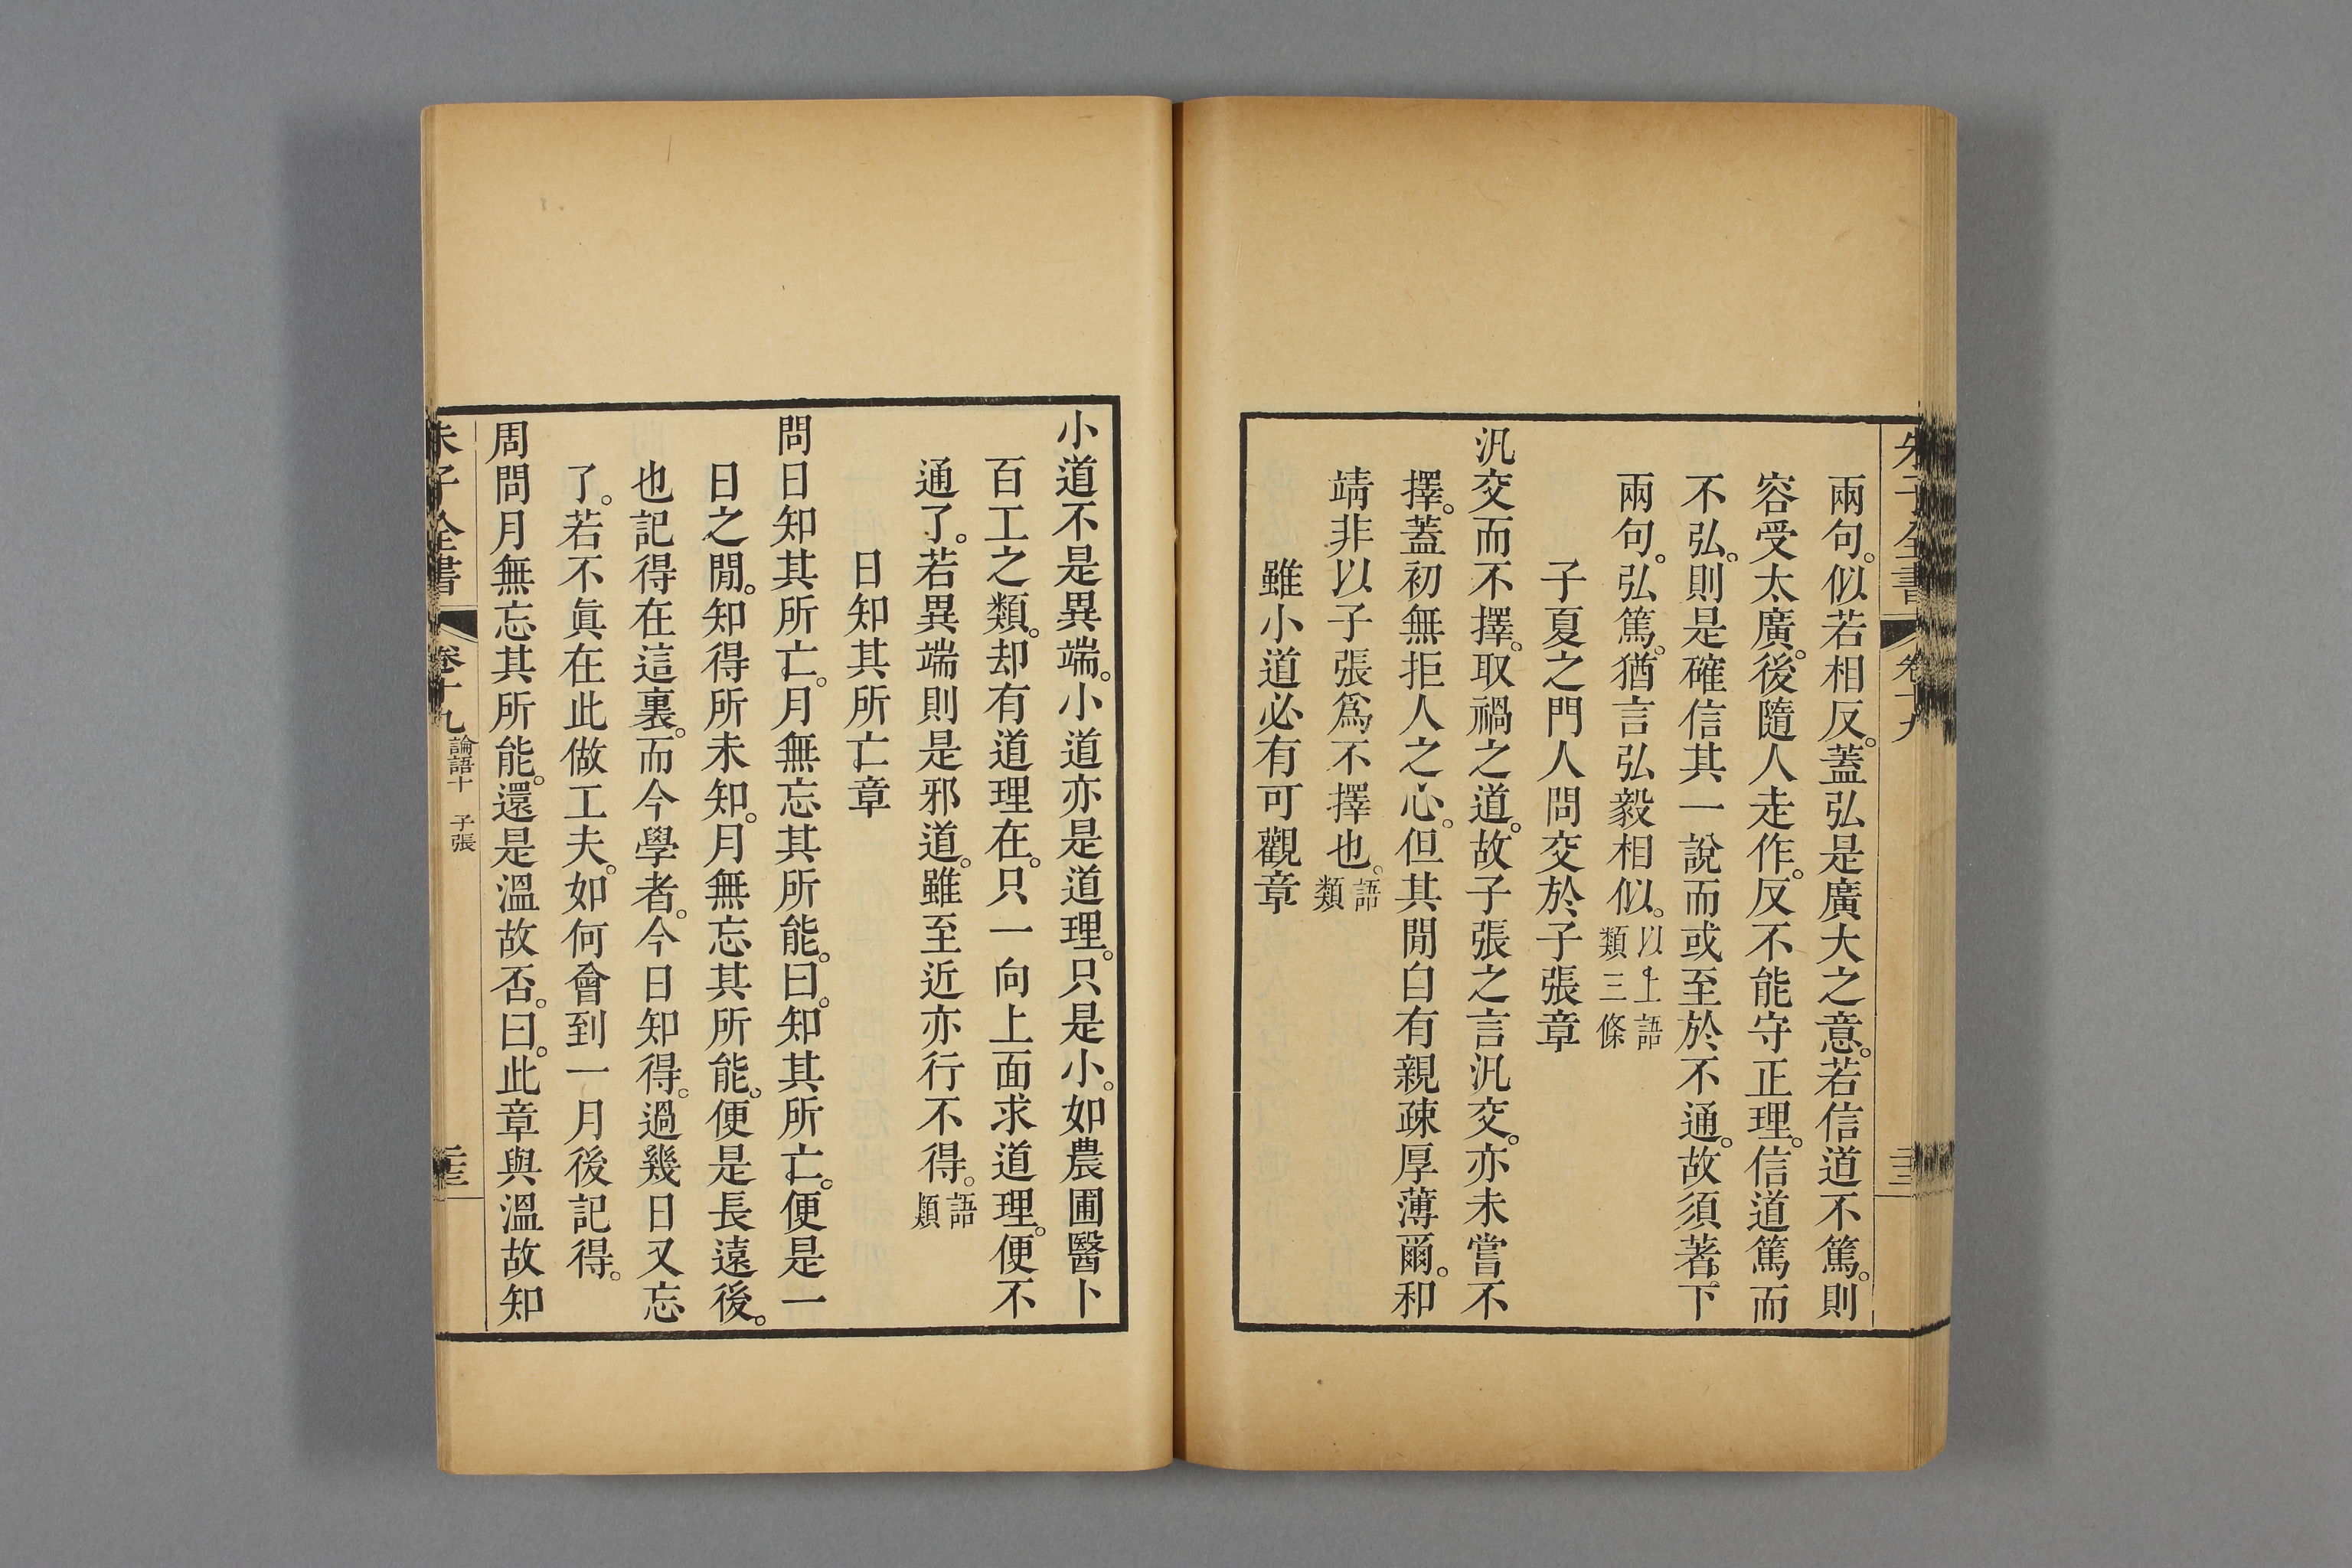 兩句。似若相反。蓋弘是廣大之意。若信道不篤。則
容受太廣。後隨人走作。反不能守正理。信道篤而
不弘。則是確信其一說而或至於不通。故須著。下
兩句。弘篤。猶言弘毅相似。以上語類三條
子夏之門人問交於子張章
汎交而不擇。取禍之道。故子張之言汎交。亦未嘗不
擇。蓋初無拒人之心。但其閒自有親疎厚薄爾。和
靖非以子張爲不擇也。語類
雖小道必有可觀章
小道不是異端。小道亦是道理。只是小。如農圃醫卜
百工之類。却有道理在。只一向上面求道理。便不
通了。若異端則是邪道。雖至近亦行不得。語類
日知其所亡章
問日知其所亡。月無忘其所能。曰。知其所亡。便是一
日之閒。知得所未知。月無忘其所能。便是長遠後。
也記得在這裏。而今學者。今日知得。過幾日又忘
了。若不眞在此做工夫。如何會到一月後記得。
周問月無忘其所能。還是溫故否。曰。此章與溫故知
朱子全書
卷十九
論語十 子張